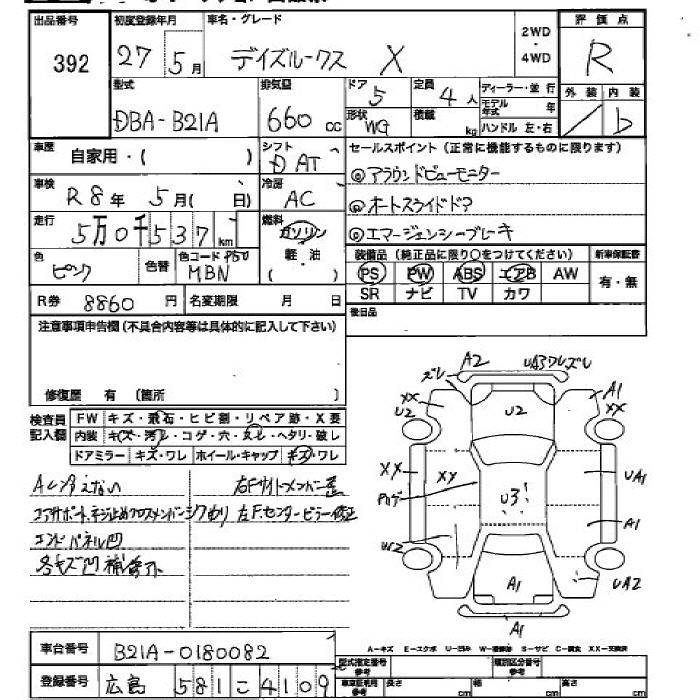 出品番号 初度登録年月 車名・グレード 2WD・4WD 評価点
392 27 5月 デイズルークス X R
型式 排気量 ドア 5 定員 4人 ディーラー・並行 外装 内装
DBA-B21A 660cc 形状 WG 積載 kg モデル年式 年 ハンドル 左・右 b
車歴 自家用・( ) シフト DAT セールスポイント(正常に機能するものに限ります)
車検 R8年 5月( 日) 冷房 AC ◎アラウンドビューモニター
走行 5万0千537km 燃料 ガソリン 軽・油 ( ) ◎オートスライドドア
◎エマージェンシーブレーキ
色 ピンク 色替 色コード P50 MBN 装備品(純正品に限り○をつけてください) 新車保証書
PS PW ABS エアB AW 有・無
R券 8860円 名変期限 月 日 SR ナビ TV カワ
注意事項申告欄(不具合内容等は具体的に記入して下さい) 後日品
修復歴 有 (箇所 )
検査員記入欄 FW キズ・飛石・ヒビ割・リペア跡・X要
内装 キズ・汚レ・コゲ・穴・スレ・ヘタリ・破レ
ドアミラー キズ・ワレ ホイール・キャップ キズ・ワレ
A2 UA3ワレズレ
ズレ A1
XX U2 U2 XX
XX XY U3 UA1
A1
U2 A1 UA2
A1
A/C冷えない 右Fサイドメンバー歪
コアサポートネジ止めクロスメンバー
左Fセンターピラー修正
エンドパネル凹
各キズ凹
A-キズ E-エクボ U-凹み W-補修跡 S-サビ C-腐食 XX-交換済
車台番号 B21A-0180082
登録番号 広島 581 こ 4109
型式指定番号 参考 類別区分番号 参考
車庫証明用 参考 長さ cm 幅 cm 高さ cm